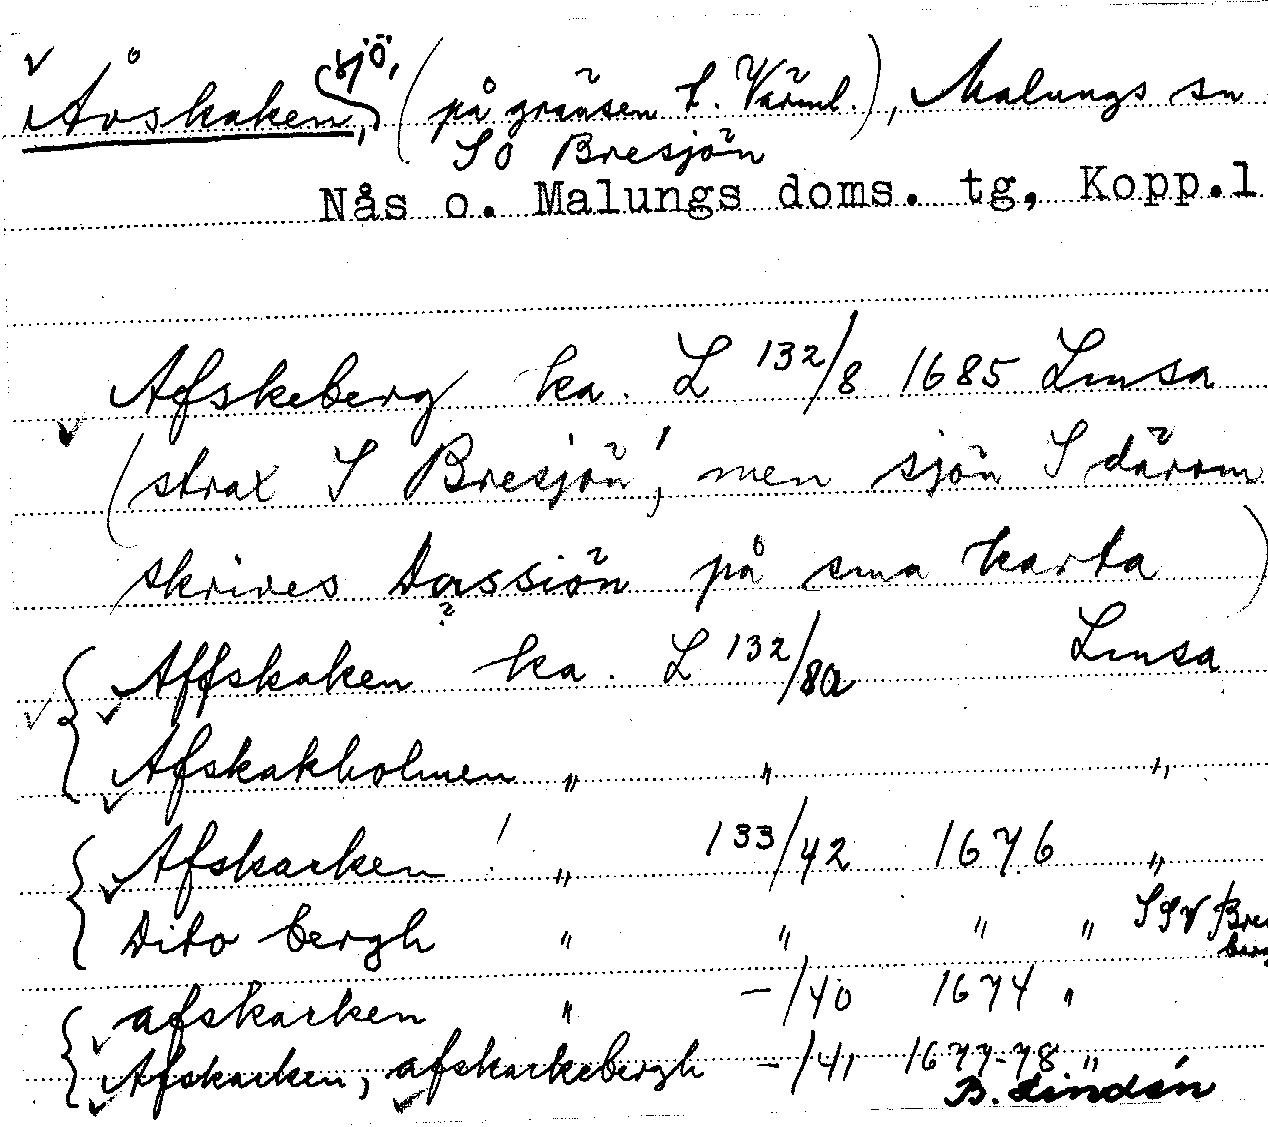 Åvskaken, sjö, (på gränsen t. Värml.), Malungs sn
SO Bresjön
Nås o. Malungs doms. tg, Kopp.l
Afskeberg ka. L 132/8 1685 Lmsa
(strax S Bresjön', men sjön S därom
skrives Dassiön på sma karta)
?
Affskaken ka. L 132/8a Lmsa
Afskakholmen " " "
Afskarken ! " 133/42 1676 "
Dito bergh " " " " SSV Bre
berg
afskarken " -/40 1674 "
Afskarken, afskarkebergh -/41 1677-78 "
B. Lindén